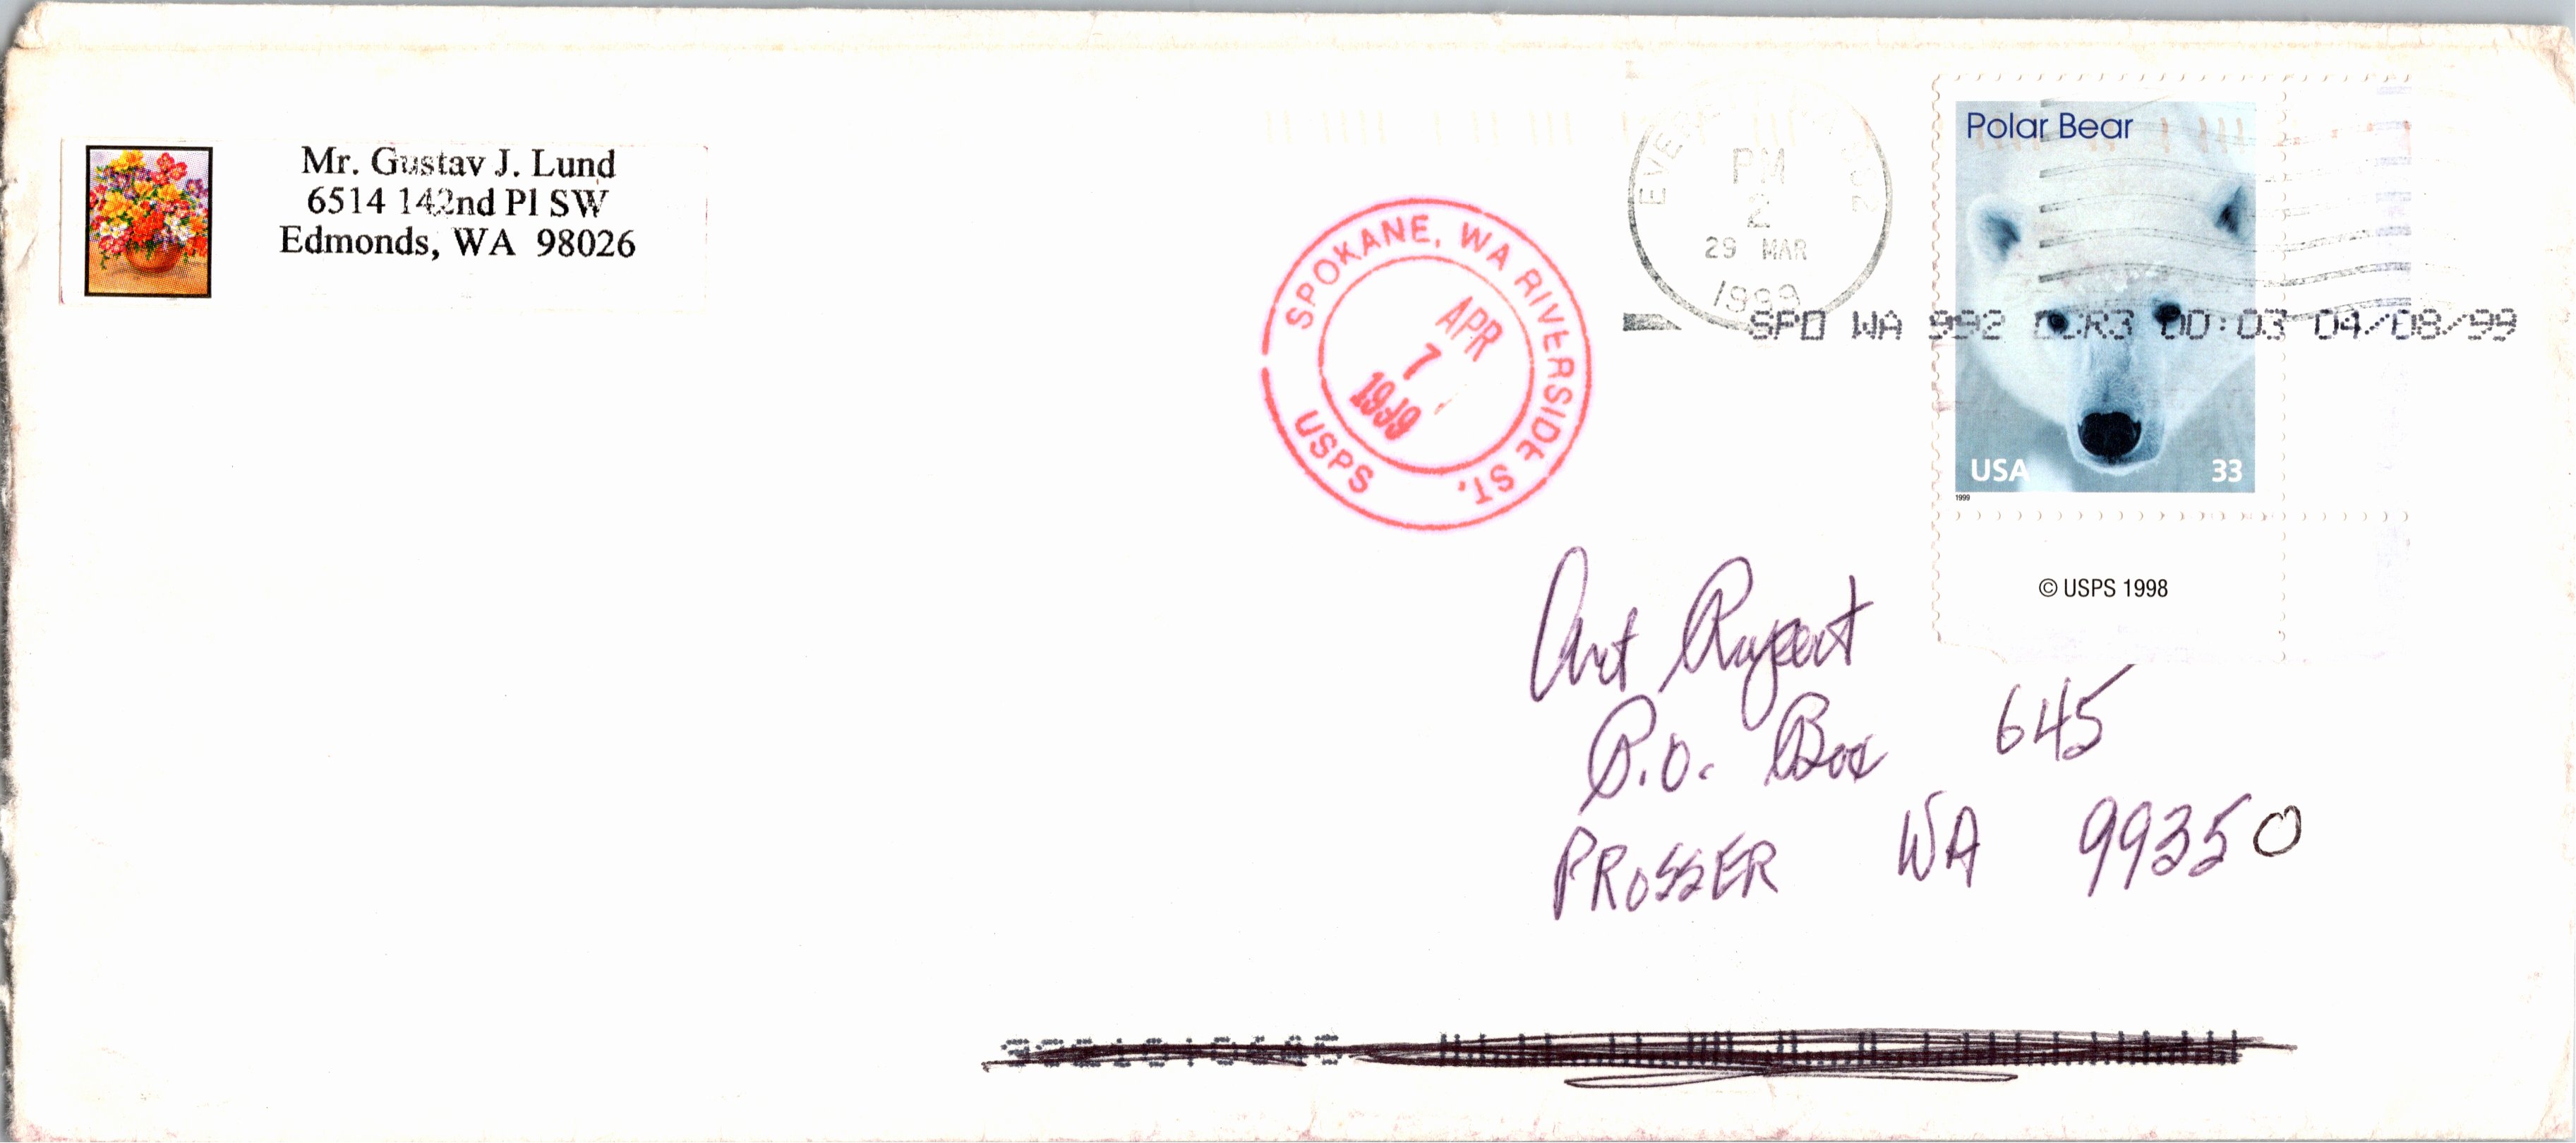 Mr. Gustav J. Lund
6514 142nd Pl SW
Edmonds, WA 98026
SPOKANE, WA RIVERSIDE ST.
APR
7
1999
USPS
PM
2
29 MAR
1999
SPO WA 992 00:03 04/08/99
Polar Bear
USA 33
1999
© USPS 1998
Art Rupert
P.O. Box 645
PROSSER WA 99350